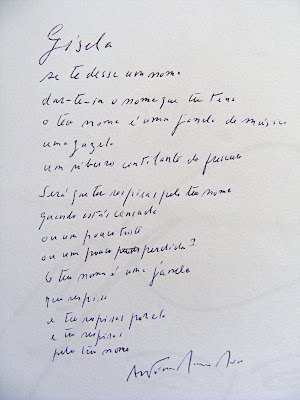 Gisela
se te desse um nome
dar-te-ia o nome que tu tens
o teu nome é uma janela de música
uma gazela
um ribeiro cintilante de frescura
Será que tu respiras pelo teu nome
quando estás cansada
ou um pouco triste
ou um pouco perdida?
O teu nome é uma janela
que respira
e tu respiras por ela
e tu respiras
pelo teu nome
António Ramos Rosa